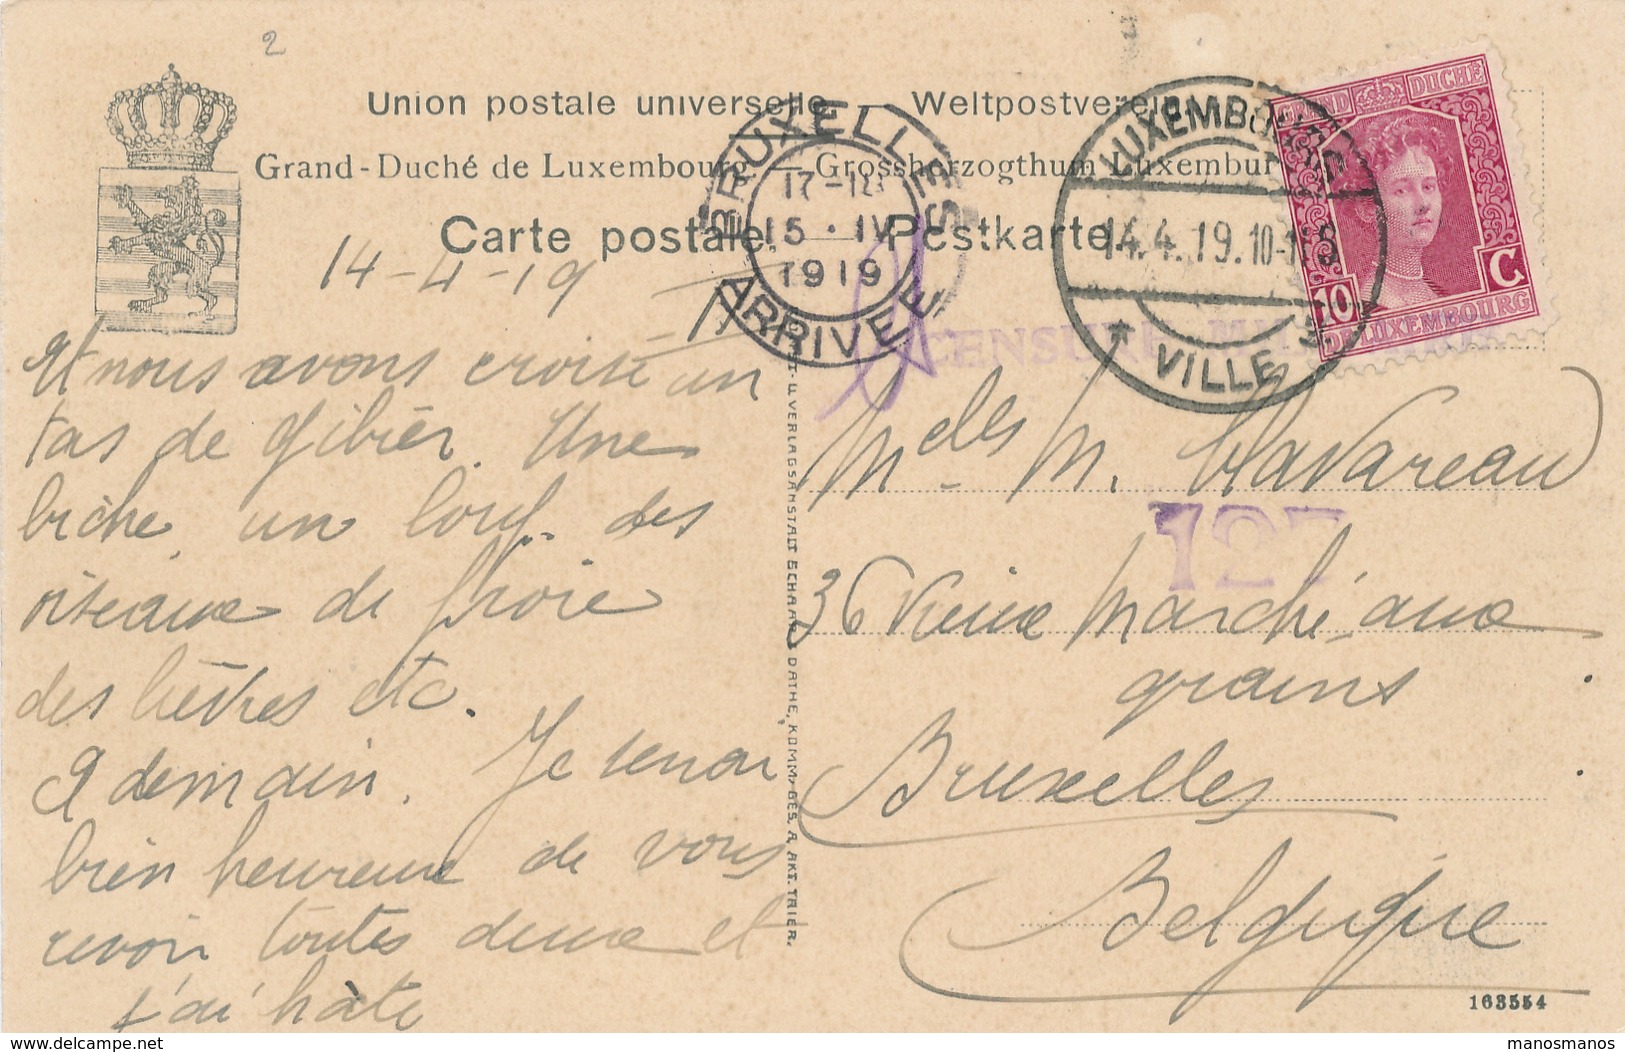 2
Union postale universelle. — Weltpostverein.
Grand-Duché de Luxembourg. — Grossherzogthum Luxemburg
Carte postale. — Postkarte.
BRUXELLES
17-18
15 · IV
1919
ARRIVEE
LUXEMBOURG
14.4.19.10-11 S
VILLE
GRAND DUCHÉ
10 C
DE LUXEMBOURG
CENSURE
127
14-4-19
Et nous avons croisé un
tas de gibier. Une
biche, un loup. des
oiseaux de proie
des lièvres etc.
A demain. Je serai
bien heureux de vous
revoir toutes deux et
j'ai hâte
Mdes M. Havareau
36 Vieux Marché aux
grains
Bruxelles
Belgique
DATHE, KOMM.-GES. A. AKT. TRIER.
163554
manosmanos
www.delcampe.net